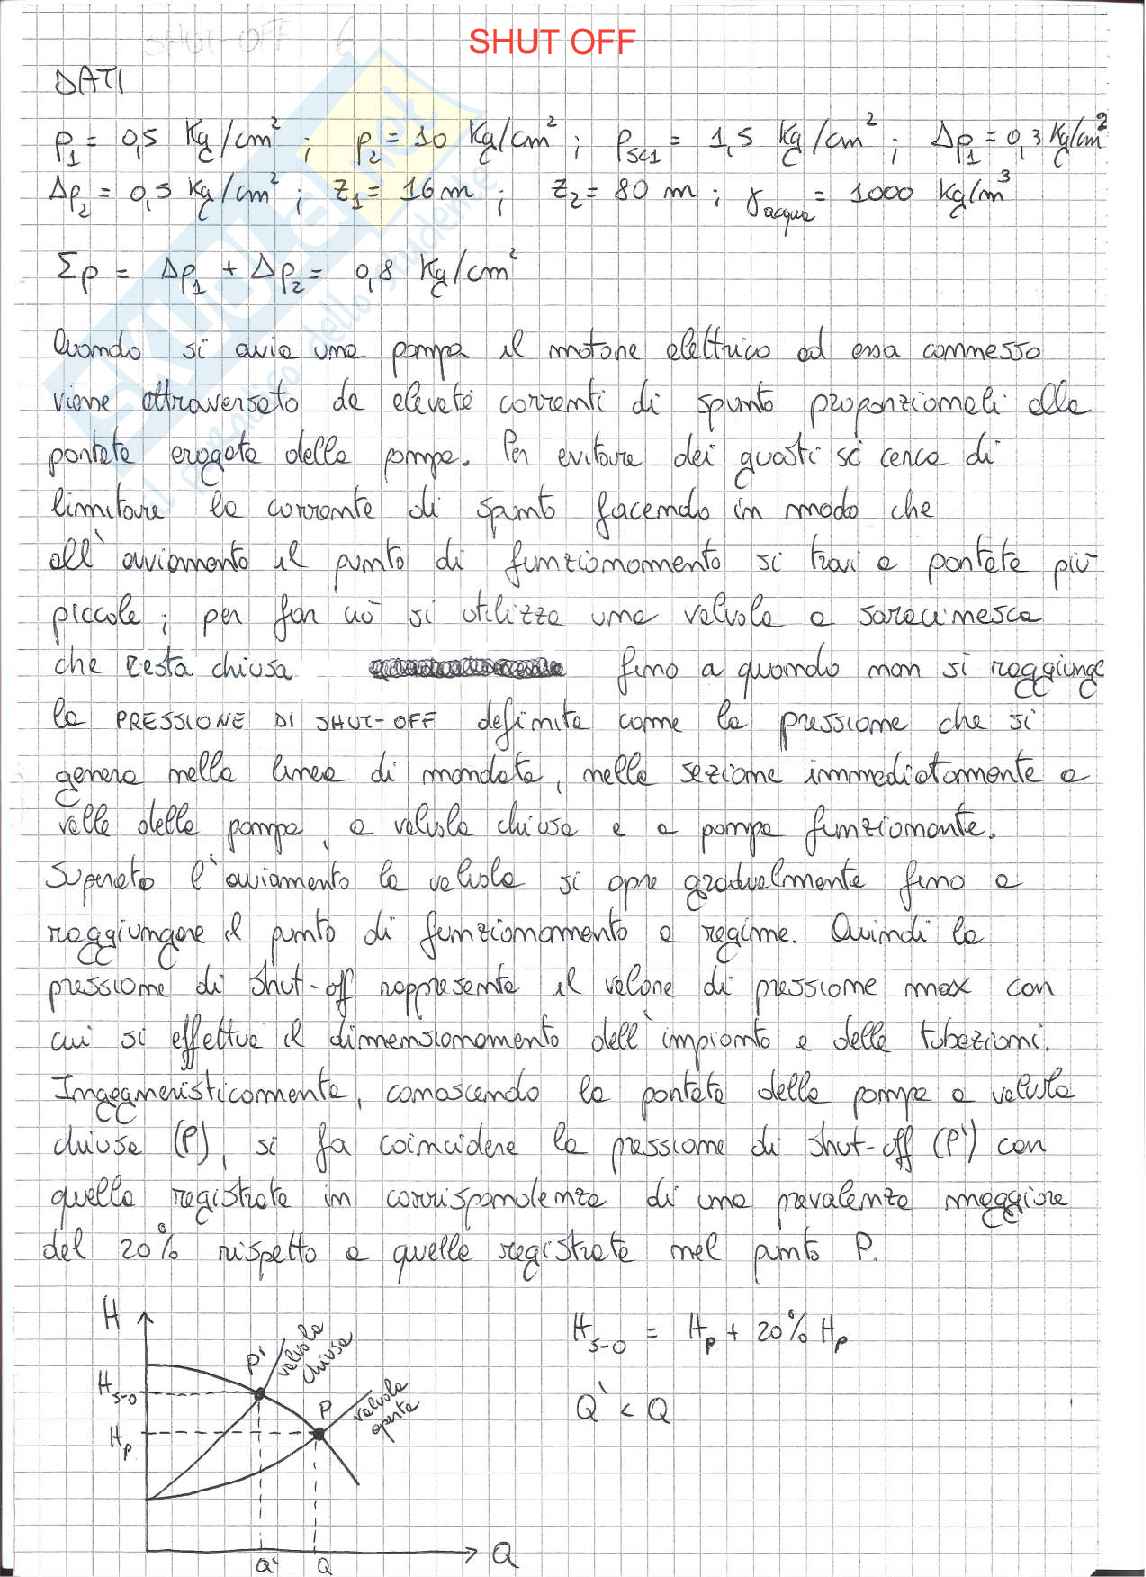 SHUT OFF
SHUT OFF 6
DATI
p1 = 0,5 Kg/cm² ; p2 = 10 Kg/cm² ; psc1 = 1,5 Kg/cm² ; Δp1 = 0,3 Kg/cm²
Δp2 = 0,5 Kg/cm² ; z1 = 16 m ; z2 = 80 m ; γacqua = 1000 Kg/m³
Σp = Δp1 + Δp2 = 0,8 Kg/cm²
Quando si avia una pompa il motore elettrico ad essa connesso
viene attraversato da elevate correnti di spunto proporzionali alla
portata erogata della pompa. Per evitare dei guasti si cerca di
limitare la corrente di spunto facendo in modo che
all'avviamento il punto di funzionamento si trovi a portate più
piccole ; per far ciò si utilizza una valvola a saracinesca
che resta chiusa fino a quando non si raggiunge
la PRESSIONE DI SHUT-OFF definita come la pressione che si
genera nella linea di mandata, nella sezione immediatamente a
valle della pompa, a valvola chiusa e a pompa funzionante.
Superato l'avviamento la valvola si apre gradualmente fino a
raggiungere il punto di funzionamento a regime. Quindi la
pressione di shut-off rappresenta il valore di pressione max con
cui si effettua il dimensionamento dell'impianto e delle tubazioni.
Ingegneristicamente, conoscendo la portata della pompa a valvola
chiusa (P), si fa coincidere la pressione di shut-off (P') con
quella registrata in corrispondenza di una prevalenza maggiore
del 20% rispetto a quella registrata nel punto P.
H
P'
valvola chiusa
Hs-o
P
valvola aperta
Hp
Q'
Q
Q
Hs-o = Hp + 20% Hp
Q' < Q